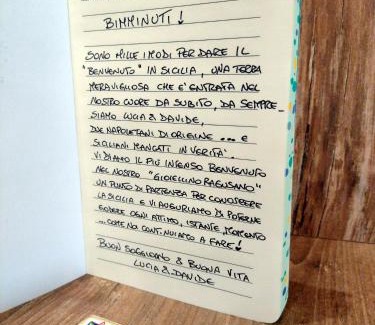 BIMMINUTI!
SONO MILLE I MODI PER DARE IL
"BENVENUTO" IN SICILIA, UNA TERRA
MERAVIGLIOSA CHE E' ENTRATA NEL
NOSTRO CUORE DA SUBITO, DA SEMPRE_
SIAMO LUCIA & DAVIDE,
DUE NAPOLETANI DI ORIGINE ... E
SICILIANI MANCATI IN VERITA'.
VI DIAMO IL PIÙ INTENSO BENVENUTO
NEL NOSTRO "GIOIELLINO RAGUSANO"
UN PUNTO DI PARTENZA PER CONOSCERE
LA SICILIA E VI AUGURIAMO DI POTERNE
GODERE OGNI ATTIMO, ISTANTE, MOMENTO
...COME NOI CONTINUIAMO A FARE!
BUON SOGGIORNO & BUONA VITA
LUCIA & DAVIDE